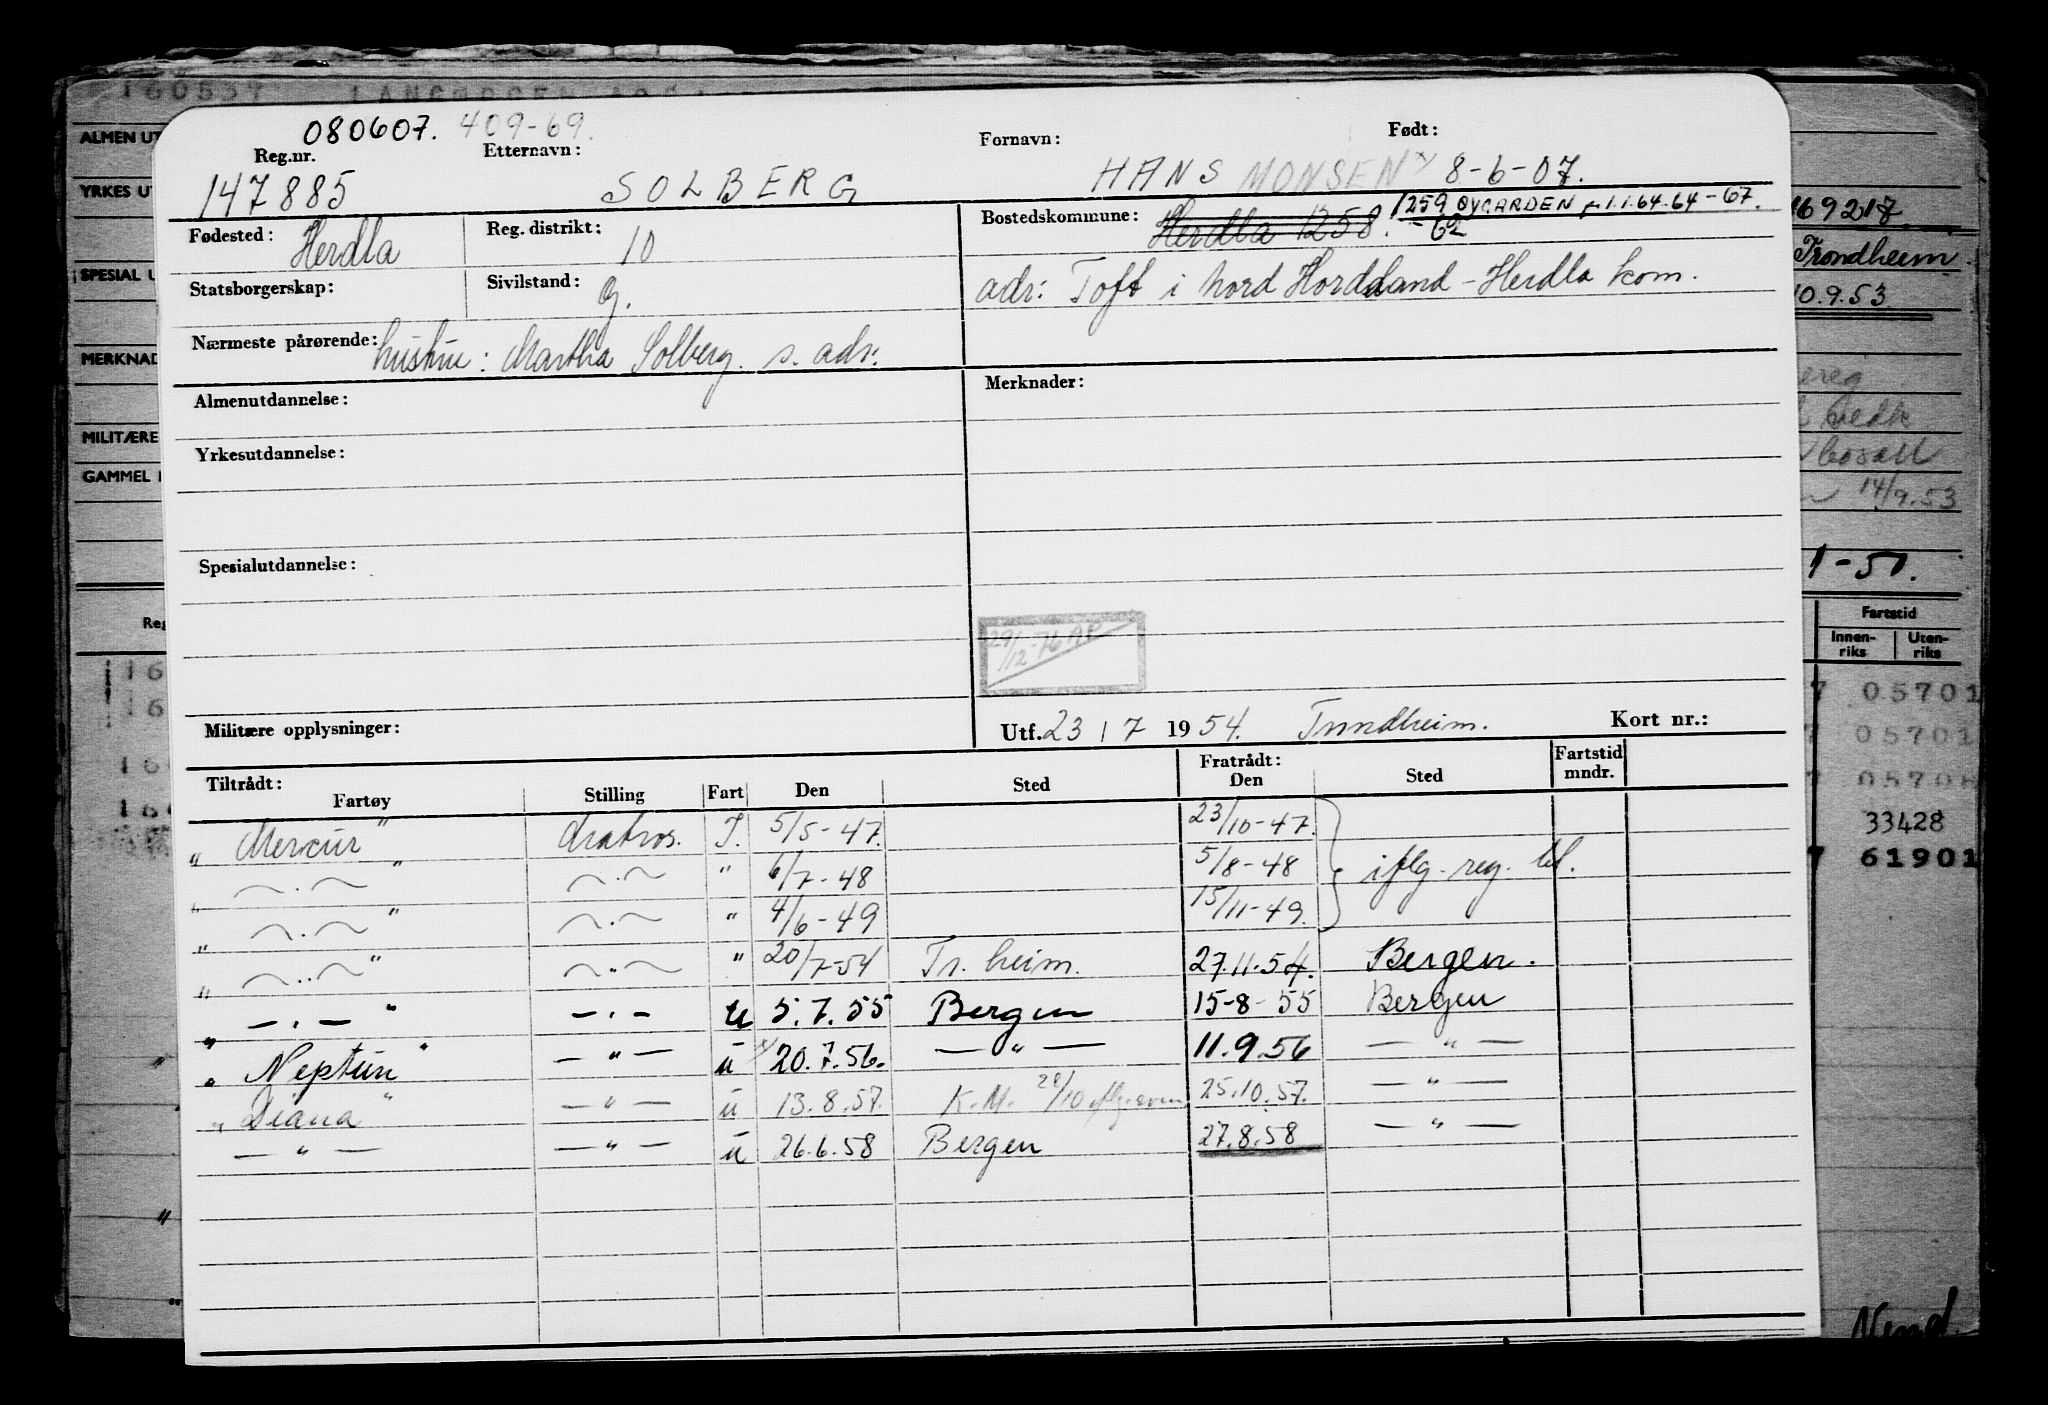 160557 LANGMOGEN
ALMEN UT
YRKES UT
SPESIAL U
MERKNAD
MILITÆRE
GAMMEL
080607. 409-69.
Reg.nr. Etternavn: Fornavn: Født:
147885 SOLBERG HANS MONSEN 8-6-07.
Fødested: Herdla Reg. distrikt: 10 Bostedskommune: Herdla 1258. 1259 ØYGARDEN fr 1.1.64. 64-67.
-62
Statsborgerskap: Sivilstand: G. adr: Toft i nord Hordaland - Herdla kom.
Nærmeste pårørende: hustru: Martha Solberg. s. adr.
Almenutdannelse: Merknader:
Yrkesutdannelse:
Spesialutdannelse:
29/12-76 AP
Militære opplysninger: Utf. 23 / 7 1954. Trondheim. Kort nr.:
Tiltrådt: Fratrådt: Fartstid
Fartøy Stilling Fart Den Sted Den Sted mndr.
"Mercur" Matros. I. 5/5-47. 23/10-47.
" ~.~ " ~.~ " 6/7-48 5/8-48 iflg. reg. bl.
" ~.~ " ~.~ " 4/6-49 15/11-49.
" ~..~ " ~.~ " 20/7-54 Tr.heim. 27.11.54. Bergen.
" —.— " —.— U 5.7.55 Bergen 15-8-55 Bergen
"Neptun" —"— U 20.7.56. —"— 11.9.56 —"—
"Diana" —"— U 13.8.57. K.M. 28/10 25.10.57. —"—
—"— —"— U 26.6.58 Bergen 27.8.58 —"—
69217
Trondheim
10.9.53
14/9.53
1-51.
Fartstid
Innen-riks Uten-riks
7 05701
05701
05708
33428
7 61901